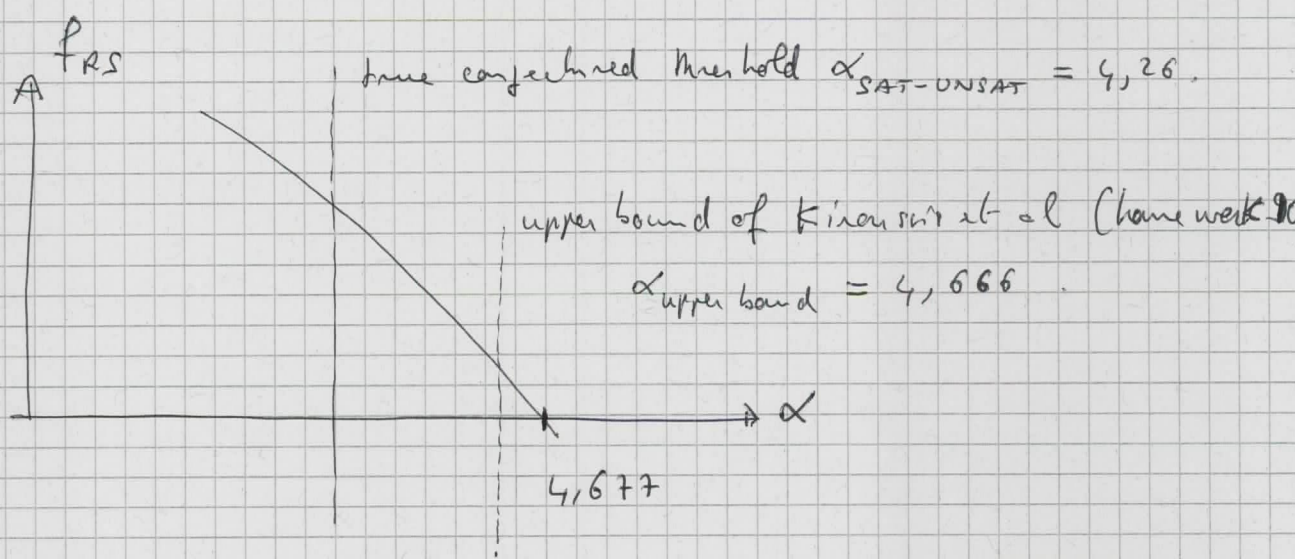 f_RS
true conjectured threshold α_SAT-UNSAT = 4,26.
upper bound of Kirousis et al (homework
α_upper bound = 4,666.
α
4,677